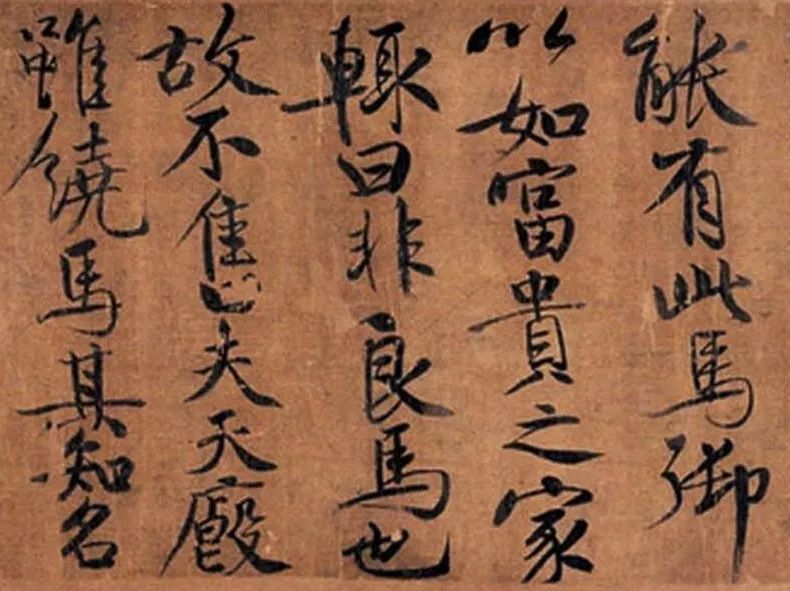 能有此馬御
以如富貴之家
輙曰非良馬也
故不售夫天廄
雖饒馬其知名